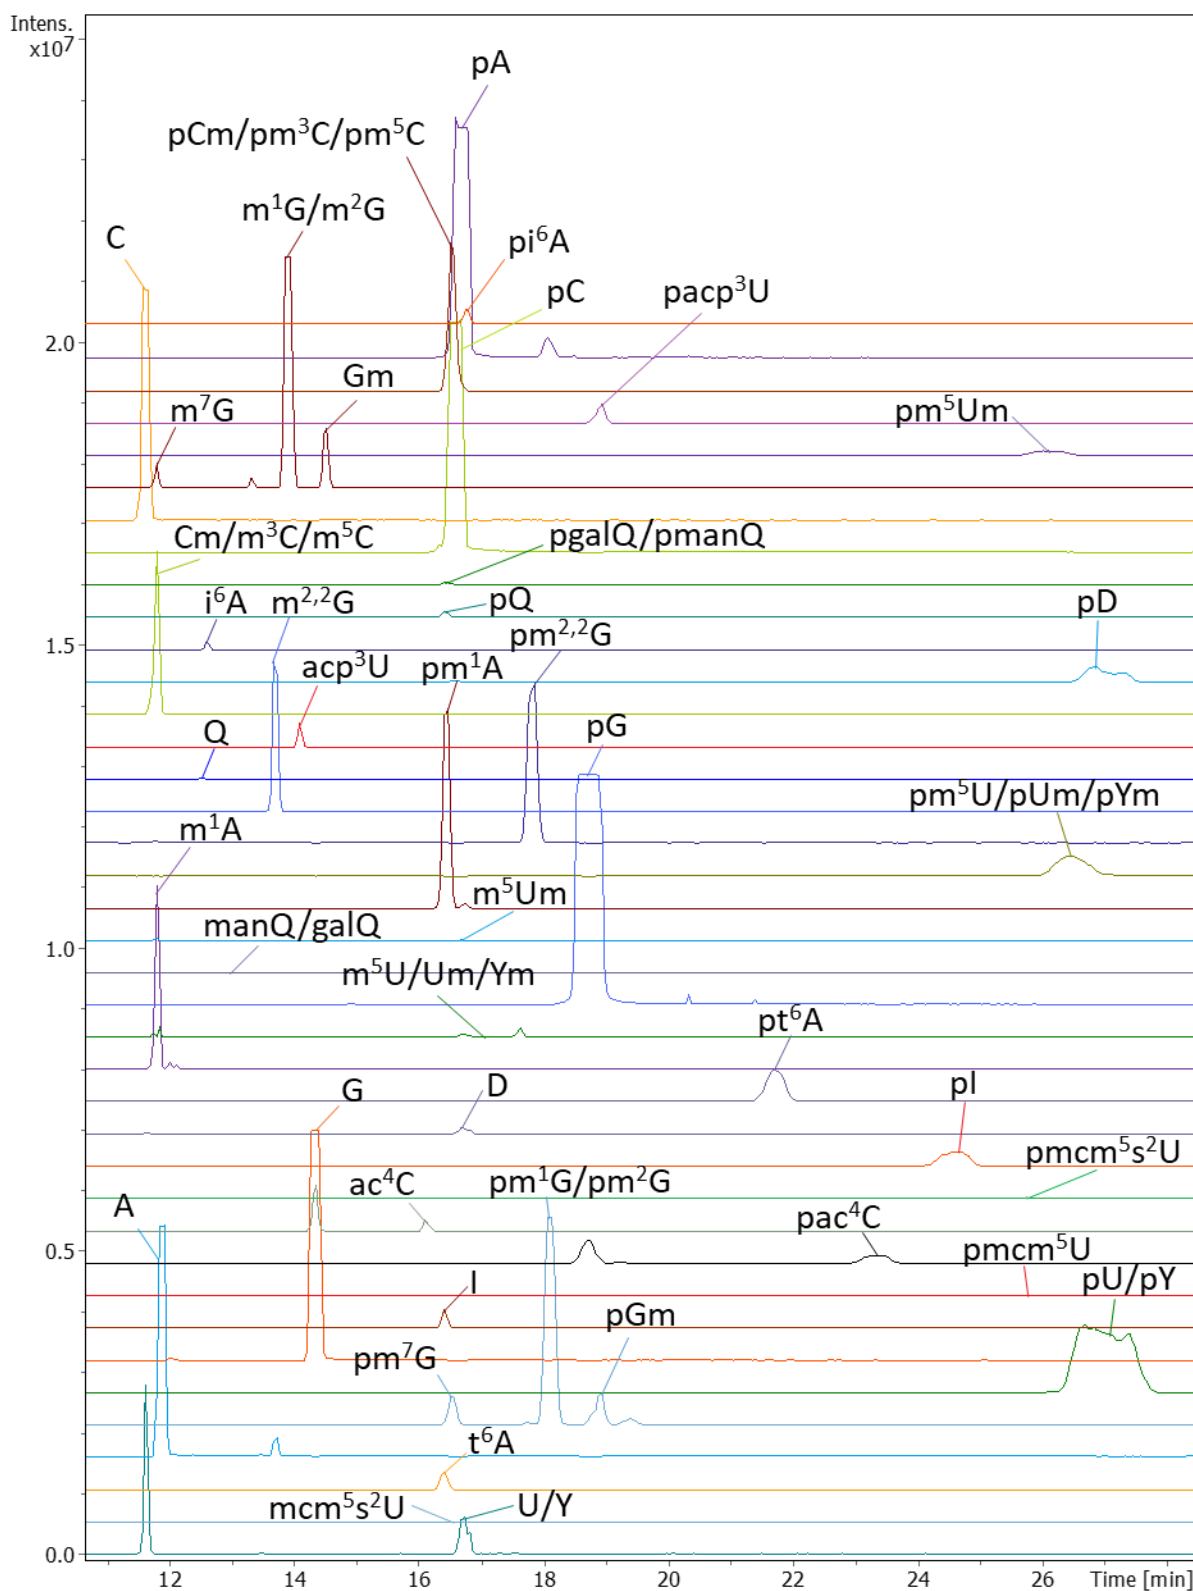 Intens.
x10⁷
pA
pCm/pm³C/pm⁵C
m¹G/m²G
C
pi⁶A
pC
pacp³U
2.0
Gm
m⁷G
pm⁵Um
Cm/m³C/m⁵C
pgalQ/pmanQ
i⁶A
m²,²G
pQ
pD
1.5
pm²,²G
acp³U
pm¹A
Q
pG
pm⁵U/pUm/pYm
m¹A
m⁵Um
manQ/galQ
1.0
m⁵U/Um/Ym
pt⁶A
G
D
pI
pmcm⁵s²U
ac⁴C
pm¹G/pm²G
A
pac⁴C
0.5
pmcm⁵U
I
pU/pY
pGm
pm⁷G
t⁶A
mcm⁵s²U
U/Y
0.0
12 14 16 18 20 22 24 26 Time [min]